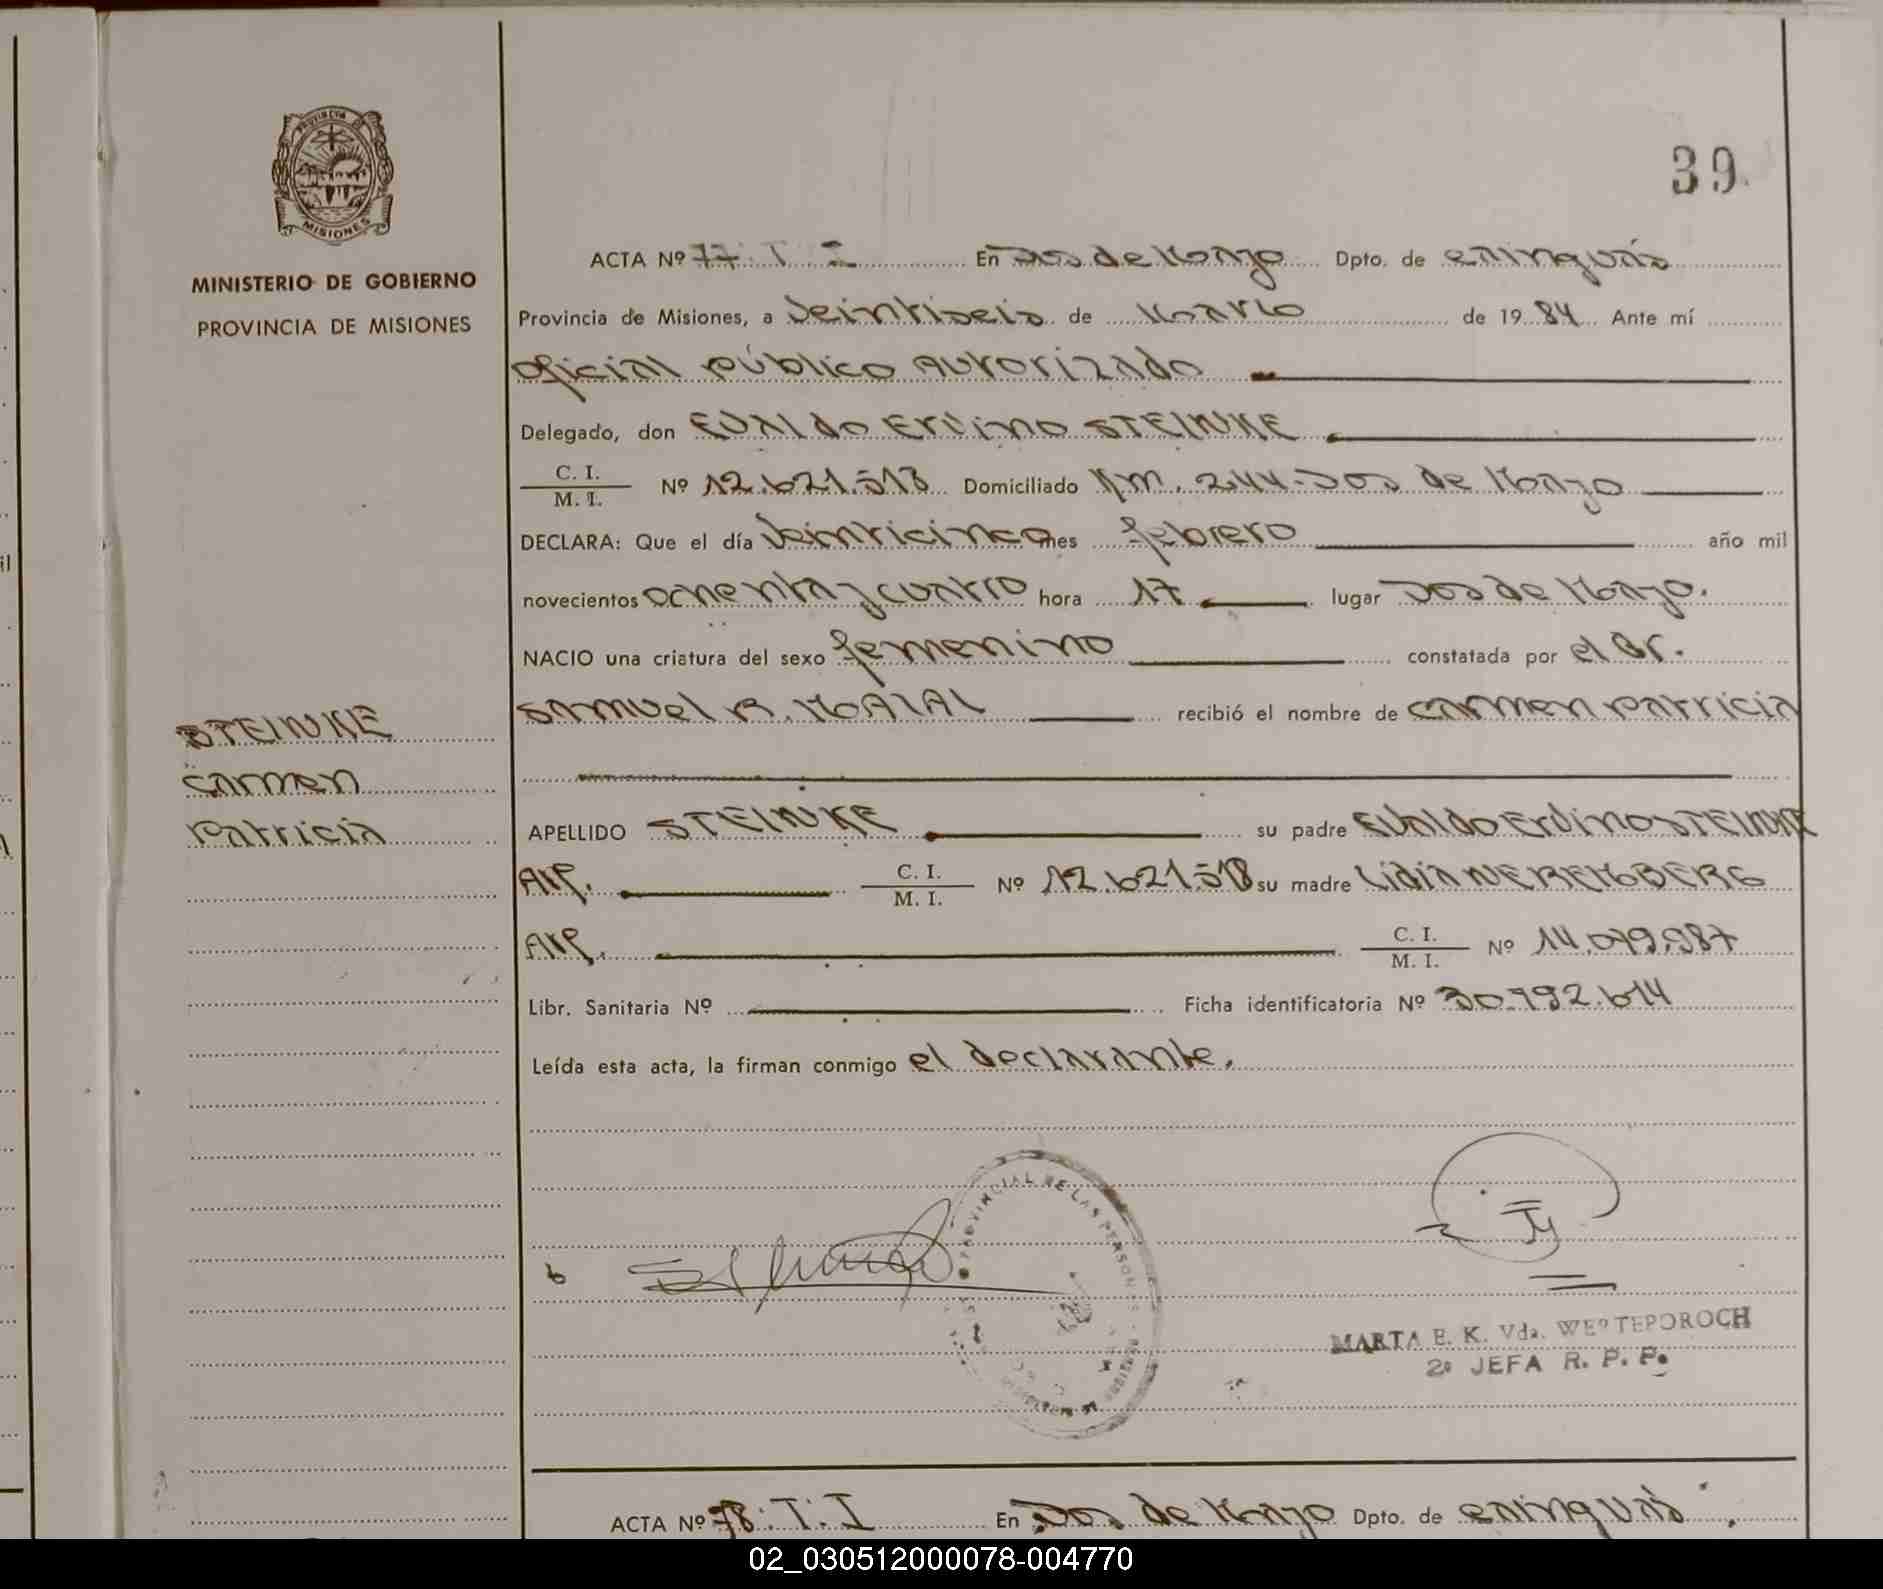 PROVINCIA DE
MISIONES
MINISTERIO DE GOBIERNO
PROVINCIA DE MISIONES
39
ACTA Nº 77. T. I En Dos de Mayo Dpto. de Cainguás
Provincia de Misiones, a Veintiseis de Marzo de 1984 Ante mí
Oficial Público Autorizado
Delegado, don EVALDO Ervino STEINKE
C. I.
M. I. Nº 12.621.518 Domiciliado Km. 244-Dos de Mayo
DECLARA: Que el día Veinticinco mes febrero año mil
novecientos ochenta y cuatro hora 17 lugar Dos de Mayo.
NACIO una criatura del sexo femenino constatada por el Dr.
Samuel R. MOAZAL recibió el nombre de Carmen Patricia
STEINKE
Carmen
Patricia
APELLIDO STEINKE su padre Evaldo Ervino STEINKE
Arg. C. I.
M. I. Nº 12.621.518 su madre Lidia WEREMBERG
Arg. C. I.
M. I. Nº 14.079.987
Libr. Sanitaria Nº Ficha identificatoria Nº 30.792.614
Leída esta acta, la firman conmigo el declarante.
PROVINCIAL DE LAS PERSONAS
MARTA E. K. Vda. WESTEPOROCH
2ª JEFA R. P. P.
ACTA Nº 78. T. I En Dos de Mayo Dpto. de Cainguás
02_030512000078-004770